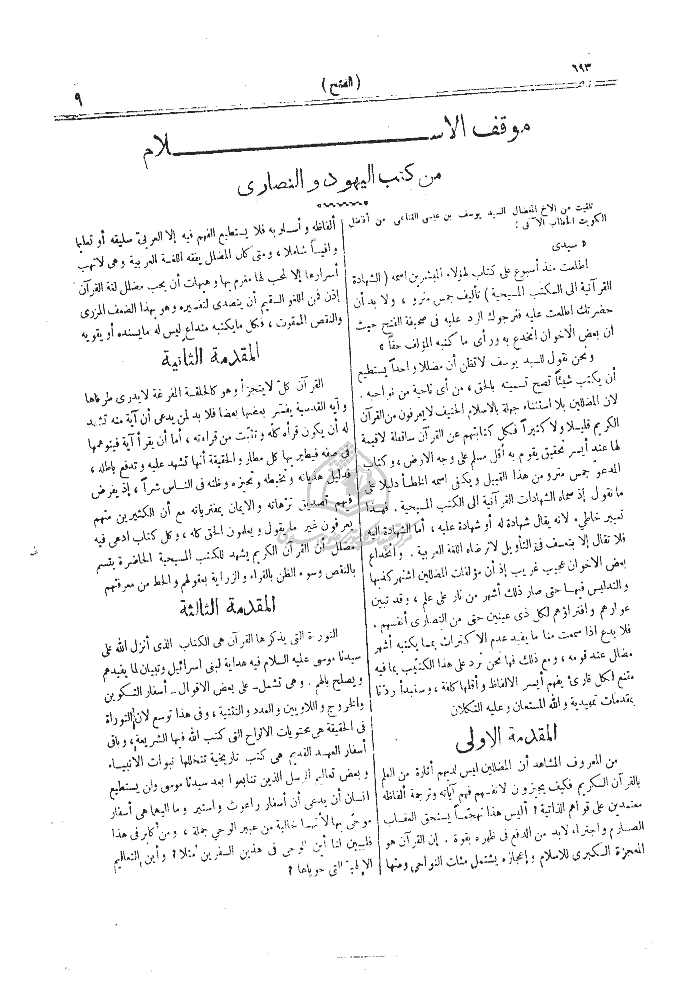 ٦٩٣
( الفتح )
٩
موقف الاســـــلام
من كتب اليهود والنصارى
تلقيت من الاخ المفضال السيد يوسف بن عيسى القناعي من أفاضل
الكويت الخطاب الآتي :
« سيدى
اطلعت منذ أسبوع على كتاب لهؤلاء المبشرين اسمه ( الشهادة
القرآنية الى الكتب المسيحية ) تأليف جمس منرو ، ولا بد أن
حضرتك اطلعت عليه فنرجوك الرد عليه فى صحيفة الفتح حيث
أن بعض الاخوان انخدع به ورأى ما كتبه المؤلف حقاً »
ونحن نقول للسيد يوسف لا تظن أن مضللا واحداً يستطيع
أن يكتب شيئاً تصح تسميته بالحق ، من أى ناحية من نواحيه .
لان المضللين بلا استثناء جهلة بالاسلام الحنيف لا يعرفون من القرآن
الكريم قليلا ولا كثيراً فكل كتابتهم عن القرآن ساقطة لا قيمة
لها عند أيسر تحقيق يقوم به أقل مسلم على وجه الارض ، وكتاب
المدعو جمس منرو من هذا القبيل ويكفى اسمه الخطأ دليلا على
ما نقول إذ سماه الشهادات القرآنية الى الكتب المسيحية . فهذا
تعبير خاطىء لانه يقال شهادة له أو شهادة عليه ، أما الشهادة اليه
فلا تقال إلا بتعسف فى التأويل لا ترضاه اللغة العربية . وانخداع
بعض الاخوان عجيب غريب إذ أن مؤلفات المضللين اشتهر كذبها
والتدليس فيها حتى صار ذلك أشهر من نار على علم ، وقد تبين
عوارهم وافتراؤهم لكل ذى عينين حتى من النصارى أنفسهم .
فلا بدع اذا سمعت منا ما يفيد عدم الاكتراث بما يكتبه أشهر
مضال عند قومه ، ومع ذلك فها نحن نرد على هذا الكتيب بما فيه
مقنع لكل قارىء يفهم أيسر الالفاظ وأقلها كلفة ، وسنبدأ ردنا
بمقدمات تمهيدية والله المستعان وعليه التكلان
المقدمة الاولى
من المعروف المشاهد أن المضللين ليس لديهم أثارة من العلم
بالقرآن الكريم فكيف يجيزون لانفسهم فهم آياته وترجمة ألفاظه
معتمدين على قواهم الذاتية ؟ أليس هذا تهجماً يستحق العقاب
الصارم واجتراء لابد من الدفع فى ظهره بقوة . إن القرآن هو
المعجزة الكبرى للاسلام وإعجازه يشتمل مئات النواحى ومنها
ألفاظه وأسلوبه فلا يستطيع الفهم فيه إلا العربى سليقة أو تعلما
وافياً شاملا ، ومتى كان المضلل يفقه اللغة العربية وهى لا تهب
أسرارها إلا لمحب لها مغرم بها وهيهات أن يحب مضلل لغة القرآن
إذن فمن اللغو السقيم أن يتصدى لتفسيره وهو بهذا الضعف المزرى
والنقص الممقوت ، فكل ما يكتبه متداع ليس له ما يسنده أو يقويه
المقدمة الثانية
القرآن كلّ لا يتجزأ وهو كالحلقة المفرغة لا يدرى طرفاها
وآيه القدسية يفسر بعضها بعضا فلا بد لمن يدعى أن آية منه تشهد
له أن يكون قرأه كله وتثبت من قراءته ، أما أن يقرأ آية فيتوهمها
فى صفه فيطير بها كل مطار والحقيقة أنها تشهد عليه وتدفع باطله ،
فدليل هذيانه وتخبطه وتحيزه وظنه فى الناس شراً ، إذ يفرض
فيهم تصديق ترهاته والايمان بمفترياته مع أن الكثيرين منهم
يعرفون غير ما يقول ويعلمون الحق كله ، وكل كتاب ادعى فيه
مضلل أن القرآن الكريم يشهد للكتب المسيحية الحاضرة يتسم
بالنقص وسوء الظن بالقراء والزراية بعقولهم والحط من معرفتهم
المقدمة الثالثة
التوراة التى يذكرها القرآن هى الكتاب الذى أنزل الله على
سيدنا موسى عليه السلام فيه هداية لبنى اسرائيل وتبيان لما يفيدهم
ويصلح بالهم . وهى تشمل ــ على بعض الاقوال ــ أسفار التكوين
والخروج واللاويين والعدد والتثنية ، وفى هذا توسع لان التوراة
فى الحقيقة هى محتويات الالواح التى كتب الله فيها الشريعة ، وباقى
أسفار العهد القديم هى كتب تاريخية تتخللها نبوات الانبياء
وبعض تعاليم الرسل الذين تتابعوا بعد سيدنا موسى ولن يستطيع
انسان أن يدعى أن أسفار راعوث واستير وما اليها هى أسفار
موحى بها لأنها خالية من عبير الوحى جملة ، ومن كابر فى هذا
فليبين لنا أين الوحى فى هذين السفرين مثلا ؟ وأين التعاليم
الإلهية التى حوياها ؟